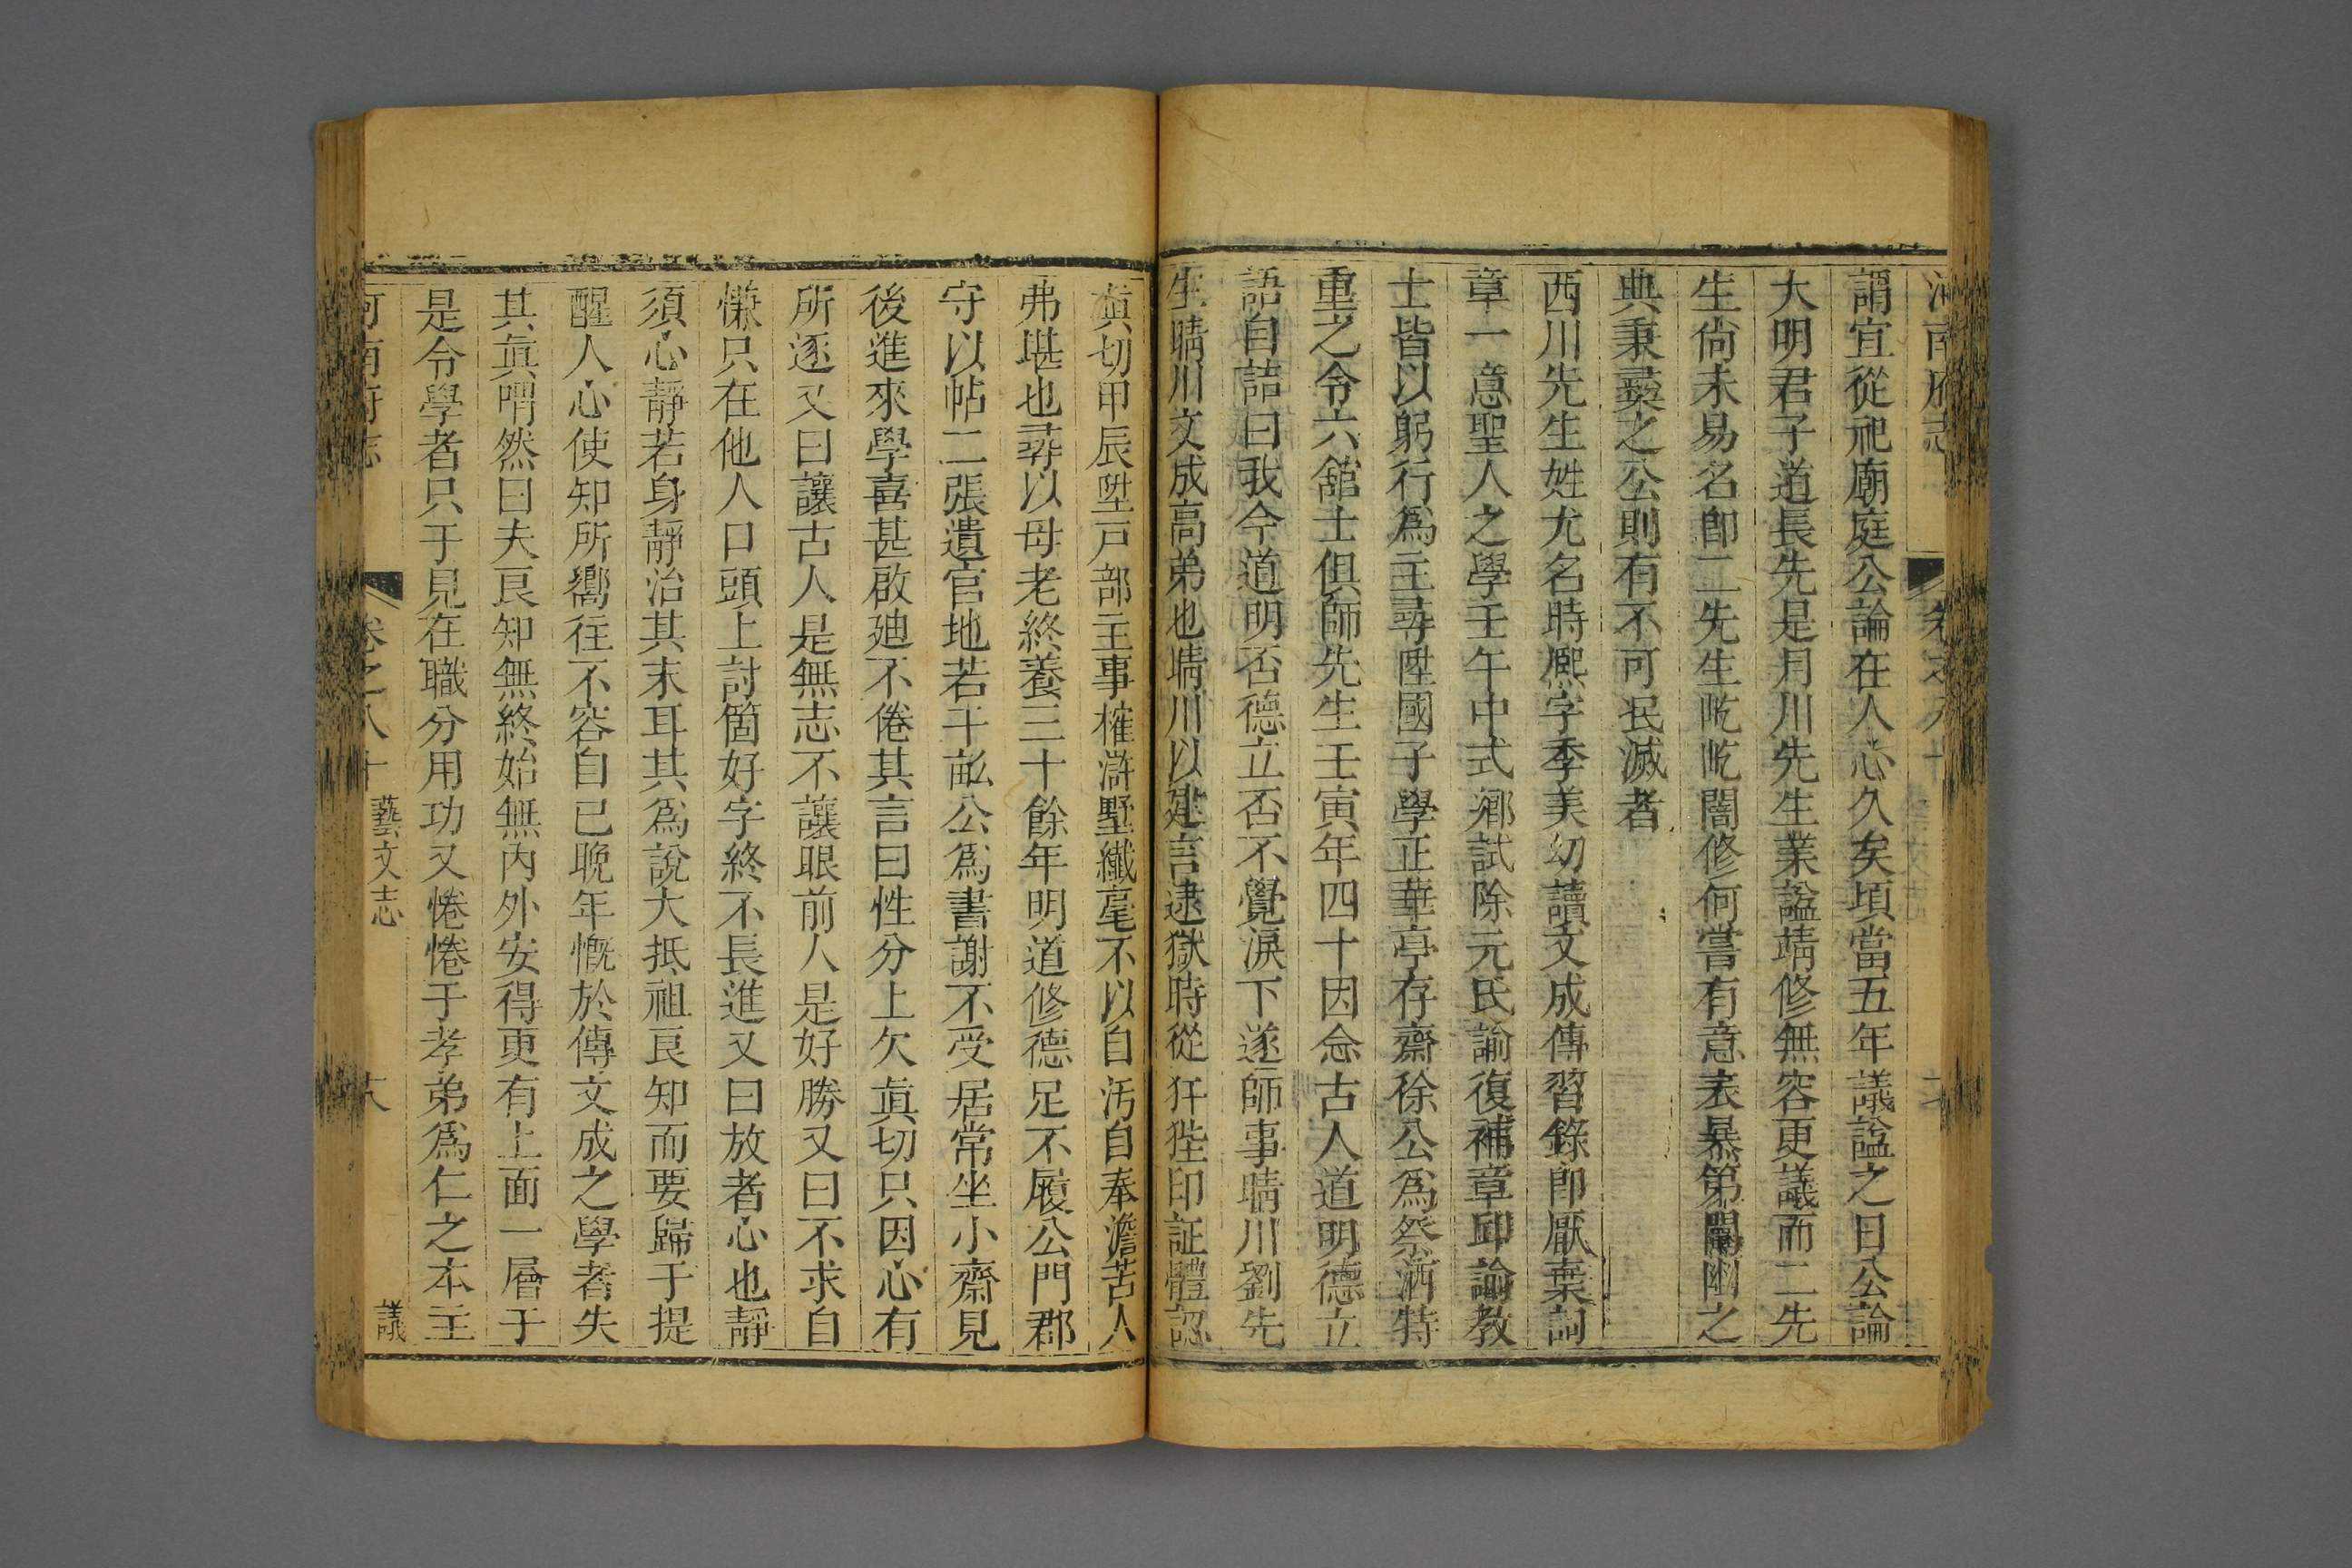 河南府志 卷之八十
謂宜從祀廟庭公論在人心久矣頃當五年議諡之日公論
大明君子道長先是月川先生業諡靖修無容更議而二先
生尙未易名卽二先生屹屹闇修何嘗有意表暴第闡幽之
典秉彛之公則有不可泯滅者
西川先生姓尤名時熈字季美幼讀文成傳習錄卽厭棄詞
章一意聖人之學壬午中式鄉試除元氏諭復補章邱諭教
士皆以躬行爲主尋陞國子學正華亭存齋徐公爲祭酒特
重之令六舘士俱師先生壬寅年四十因念古人道明德立
語自詰曰我今道明否德立否不覺淚下遂師事晴川劉先
生晴川文成高弟也晴川以建言逮獄時從犴狴印証體認
眞切甲辰陞戶部主事榷滸墅纖毫不以自汚自奉澹苦人
弗堪也尋以母老終養三十餘年明道修德足不履公門郡
守以帖二張遺官地若干畝公爲書謝不受居常坐小齋見
後進來學喜甚啟廸不倦其言曰性分上欠眞切只因心有
所逐又曰讓古人是無志不讓眼前人是好勝又曰不求自
慊只在他人口頭上討箇好字終不長進又曰放者心也靜
須心靜若身靜治其末耳其爲說大抵祖良知而要歸于提
醒人心使知所嚮往不容自已晚年慨於傳文成之學者失
其眞喟然曰夫良知無終始無內外安得更有上面一層于
是令學者只于見在職分用功又惓惓于孝弟爲仁之本主
河南府志 卷之八十 藝文志 議